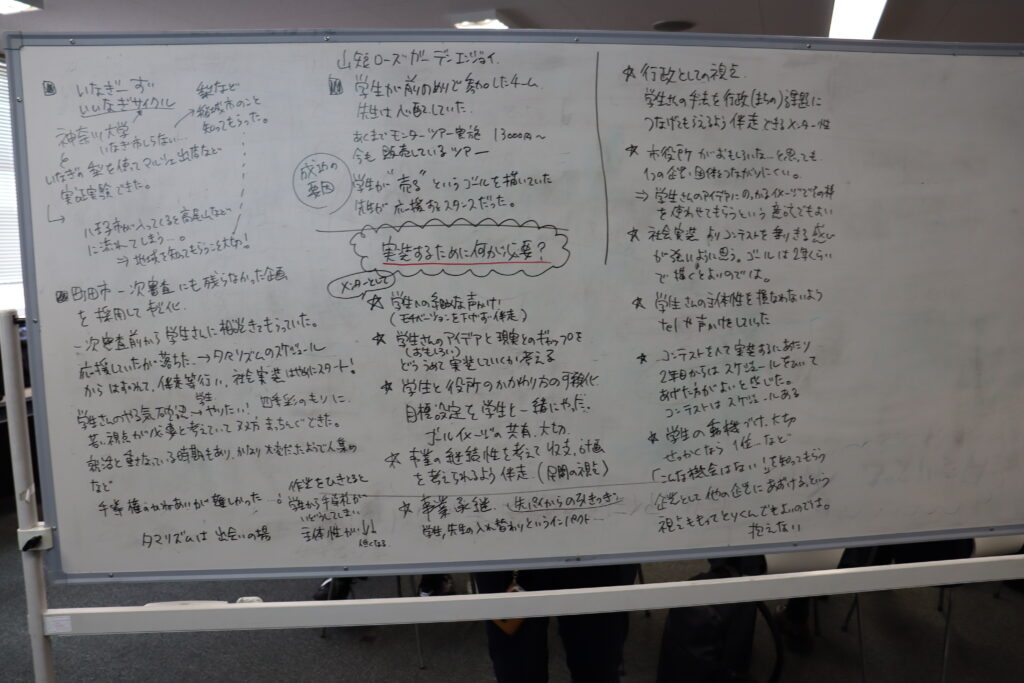 いなぎーずい
いいなぎサイクル
神奈川大学
いなぎ市しらない…
梨など
稲城市のこと
知ってもらった。
と
いなぎの梨を使ってマルシェ出店など
実証実験できた。
八王子市が入ってくると高尾山など
に流れてしまう…。
⇒ 地域を知ってもらうことも大切!
町田市 - 一次審査にも残らなかった企画
を採用して
一次審査前から学生さんに相談きてもらっていた。
応援していたが落ちた → タマリズムのスケジュール
からはずれて、伴走等行い、社会実装は早めにスタート!
学生さんのやる気 → 学生 やりたい!
若い視点が必要と考えていて双方まっちんぐできた。
部活と重なっている時期もあり、かなり大変だったようで人集め
など
タマリズムは 出会いの場
作業をひきとると
学生から手ざわりが
主体性が
低くなる
山短ローズガーデンエンジョイ
学生が前のめりで参加したチーム
先生は心配していた。
あくまでモニターツアー実施 13000円〜
今も販売しているツアー
成功の
要因
学生が "売る" というゴールを描いていた
先生が応援するスタンスだった。
実装するために何が必要?
メンターとして
☆ 学生への的確な声かけ!
(モチベーションを下げず伴走)
☆ 学生さんのアイデアと現実とのギャップを
(おもしろい)
どううめて実装していくか考える
☆ 学生と役所のかかわり方の可視化
目標設定を学生と一緒にやった。
ゴールイメージの共有、大切
☆ 事業の継続性を考えて収支計画
を考えられるよう伴走。(民間の視点)
☆ 事業承継、失パイからの引きつぎ
学生、先生の入れ替わりというインパクト
☆ 行政としての視点
学生さんの手法を行政(まちの)課題に
つなげてもらえるよう伴走できるメンター性
☆ 市役所がおもしろいな…と思っても
1つの企業・団体をつながりにくい。
⇒ 学生さんのアイデアにのっかるイメージで市の枠
を使わせてもらうという意識でもよい
☆ 社会実装よりコンテストを乗りきる感じ
が強いように思う。ゴールは2年くらい
で描くとよいのでは。
☆ 学生さんの主体性を損なわないよう
telや声がけをしていった
☆ コンテストを入て実装するにあたり
2年目からはスケジュールをひいて
あげた方がよいと感じた。
コンテストはスケジュールある
☆ 学生の動機づけ、大切
せっかくなら 1位… など
「こんな機会はない!」を知ってもらう
企業として他の企業にあずけるという
視点をもってとりくんでもよいのでは。
抱えない